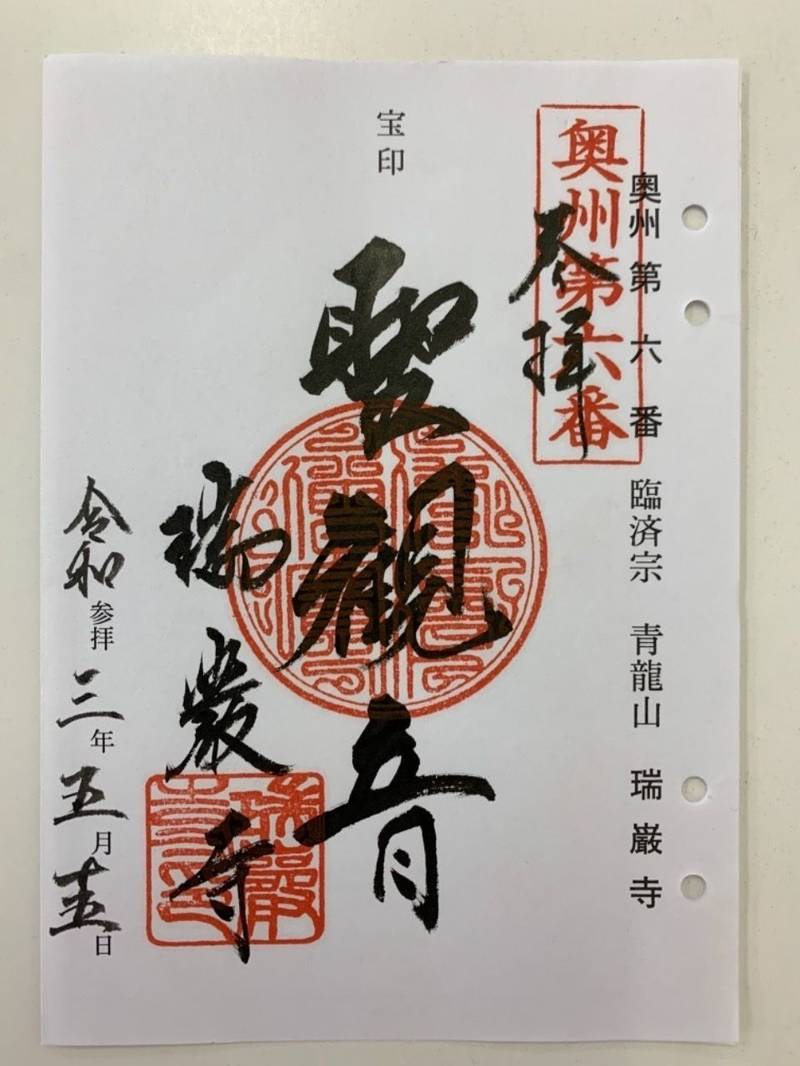 奥州第六番 臨済宗 青龍山 瑞巌寺
奥州第六番
奉拝
宝印
聖觀音
瑞巌寺
令和参拝三年五月十五日